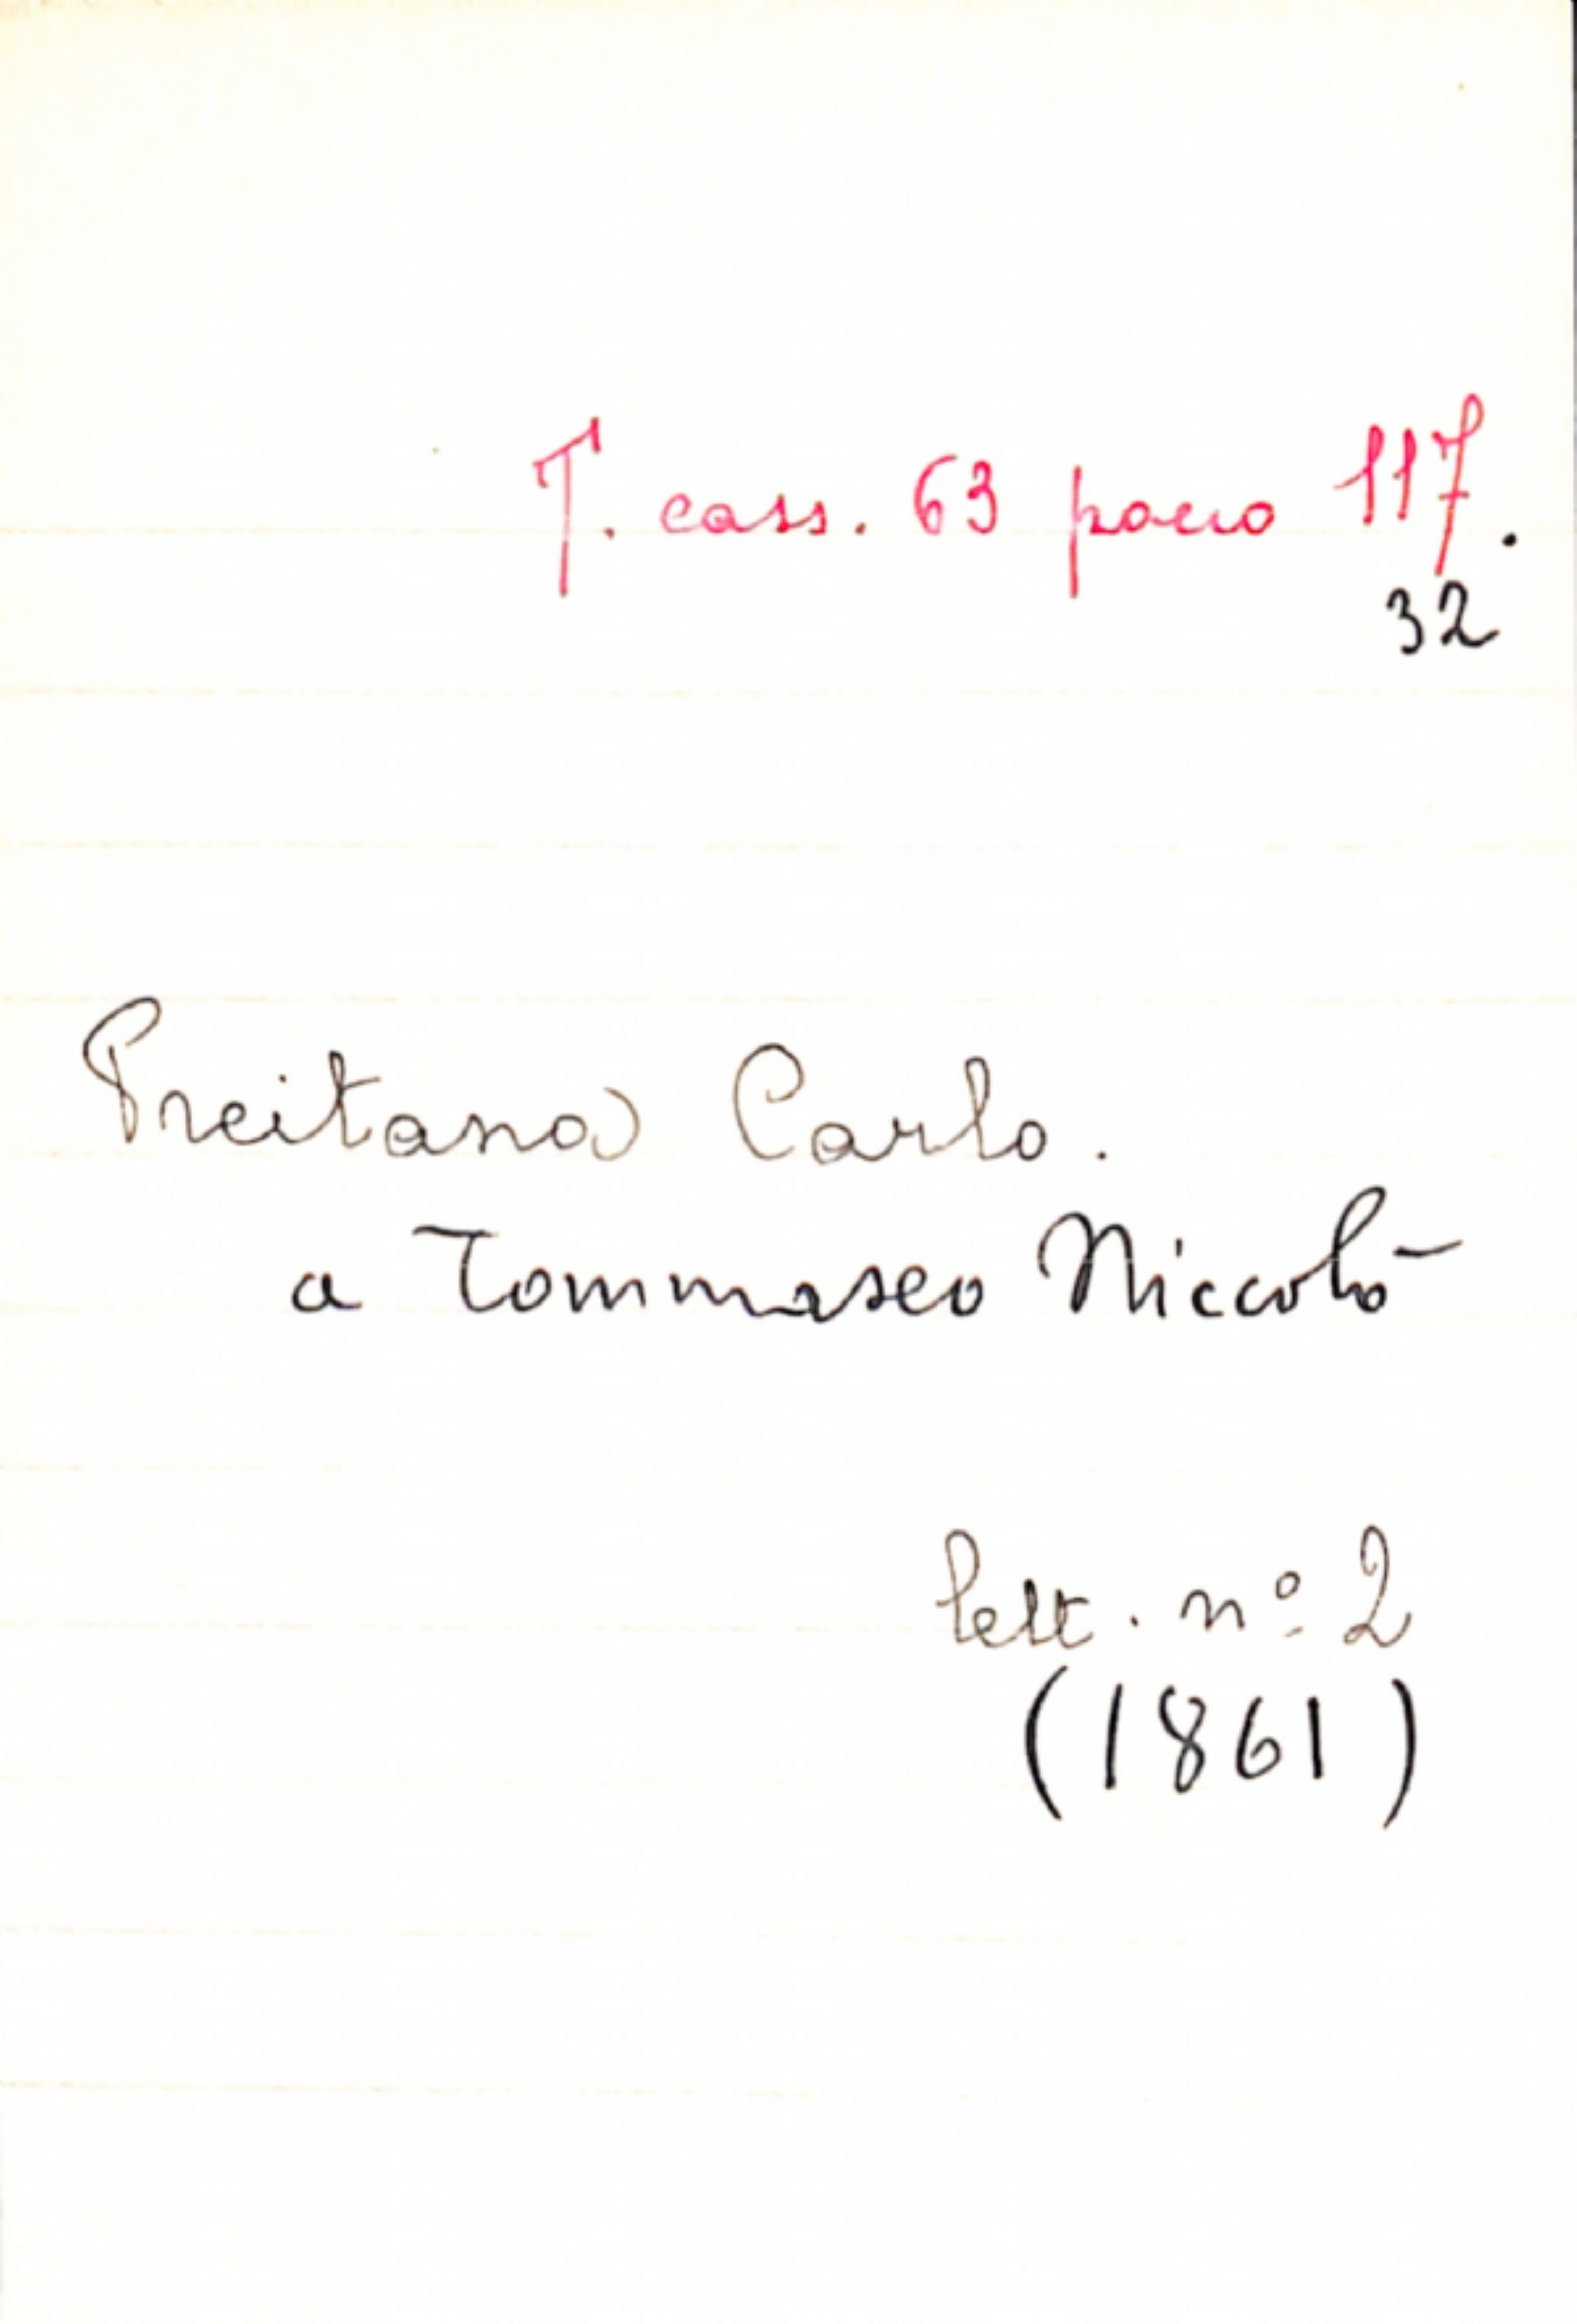 T. cass. 63 pacco 117.
32
Preitano Carlo.
a Tommaseo Niccolò
lett. nº 2
(1861)